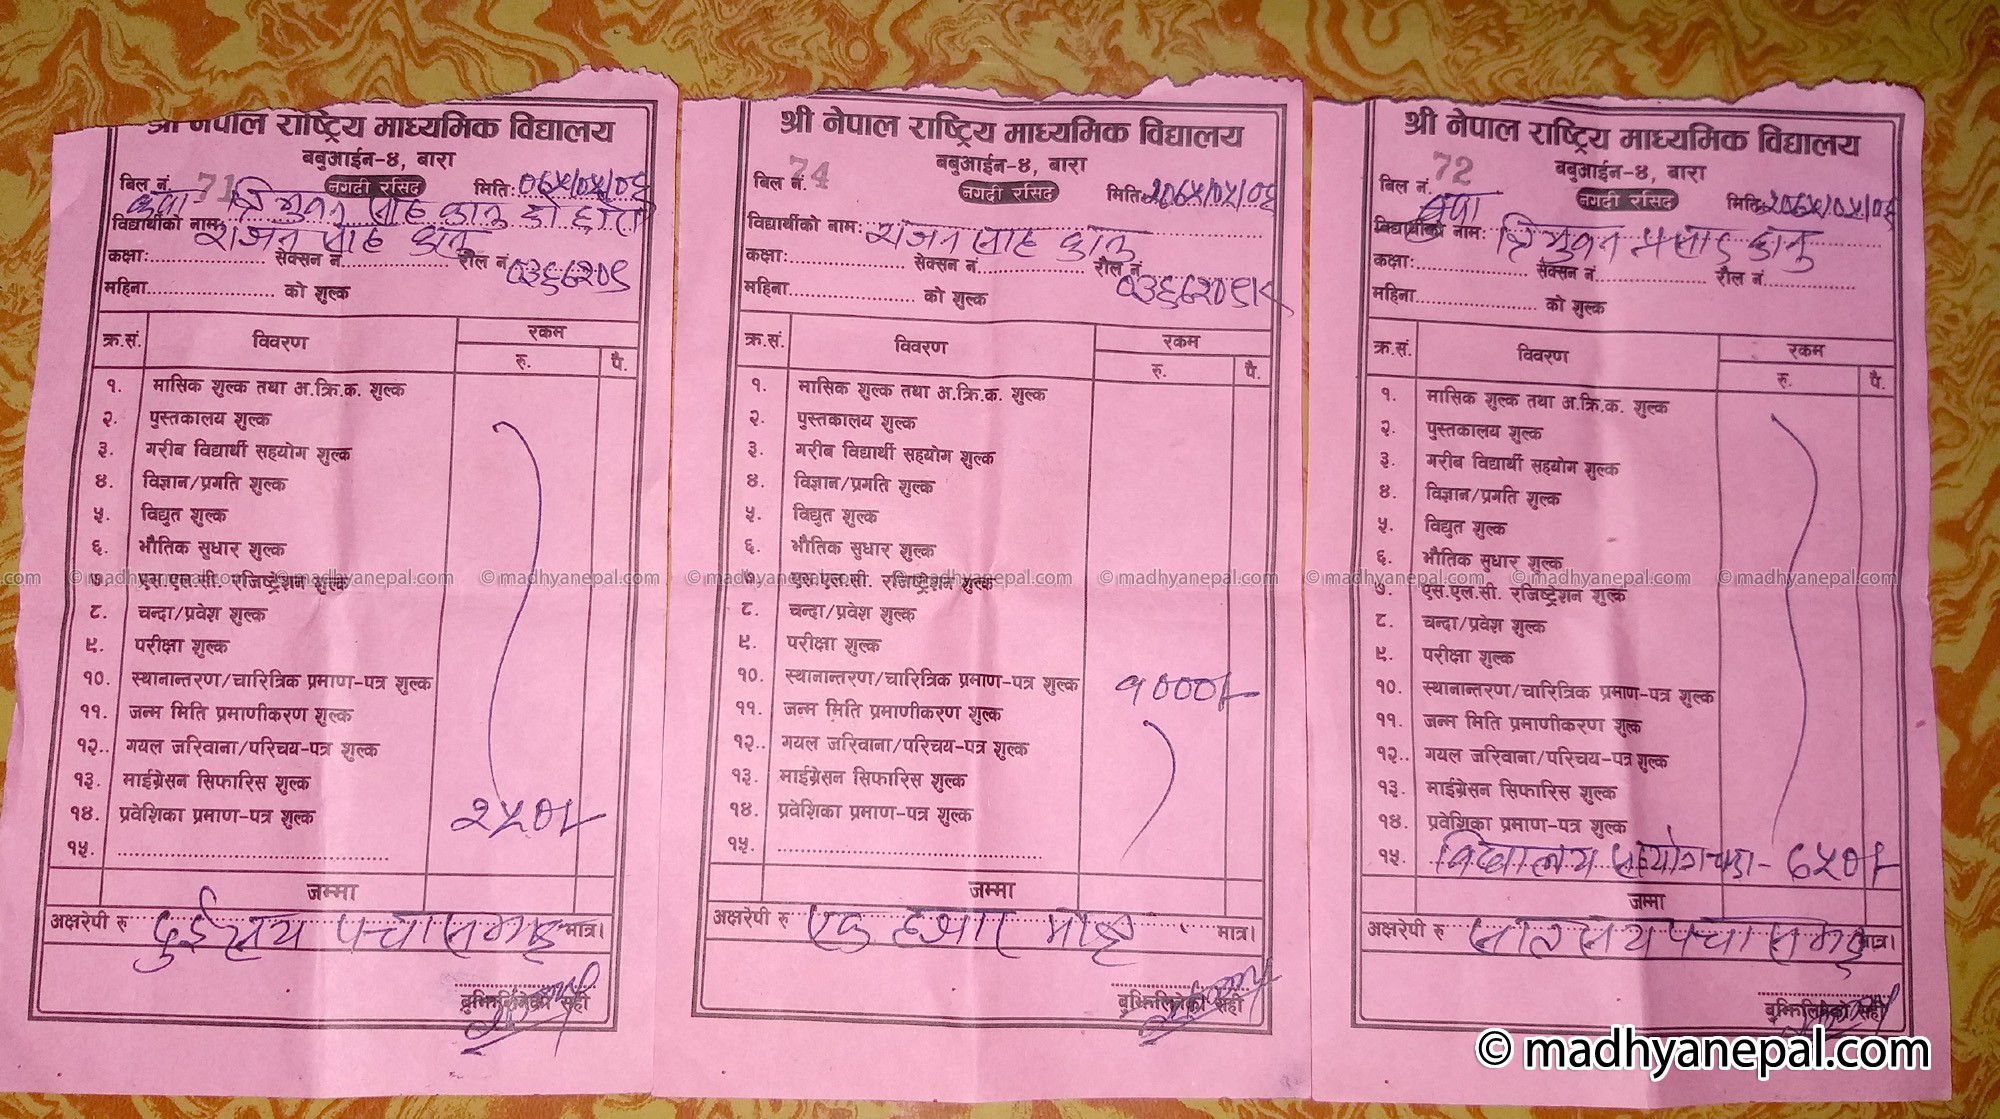 श्री नेपाल राष्ट्रिय माध्यमिक विद्यालय
बबुआईन-४, बारा
बिल नं. 71 नगदी रसिद मिति:
विद्यार्थीको नाम: राजन साह कानु
कक्षा: सेक्सन नं. रौल नं.
महिना को शुल्क
क्र.सं. विवरण रकम
रु. पै.
१. मासिक शुल्क तथा अ.क्रि.क. शुल्क
२. पुस्तकालय शुल्क
३. गरीब विद्यार्थी सहयोग शुल्क
४. विज्ञान/प्रगति शुल्क
५. विद्युत शुल्क
६. भौतिक सुधार शुल्क
७. एस.एल.सी. रजिष्ट्रेशन शुल्क
८. चन्दा/प्रवेश शुल्क
९. परीक्षा शुल्क
१०. स्थानान्तरण/चारित्रिक प्रमाण-पत्र शुल्क
११. जन्म मिति प्रमाणीकरण शुल्क
१२.. गयल जरिवाना/परिचय-पत्र शुल्क
१३. माईग्रेसन सिफारिस शुल्क
१४. प्रवेशिका प्रमाण-पत्र शुल्क २५०/-
१५.
जम्मा
अक्षरेपी रु दुई सय पचास मात्र।
बुझिलिनेको सही
श्री नेपाल राष्ट्रिय माध्यमिक विद्यालय
बबुआईन-४, बारा
बिल नं. 74 नगदी रसिद मिति:
विद्यार्थीको नाम: राजन साह कानु
कक्षा: सेक्सन नं. रौल नं.
महिना को शुल्क
क्र.सं. विवरण रकम
रु. पै.
१. मासिक शुल्क तथा अ.क्रि.क. शुल्क
२. पुस्तकालय शुल्क
३. गरीब विद्यार्थी सहयोग शुल्क
४. विज्ञान/प्रगति शुल्क
५. विद्युत शुल्क
६. भौतिक सुधार शुल्क
७. एस.एल.सी. रजिष्ट्रेशन शुल्क
८. चन्दा/प्रवेश शुल्क
९. परीक्षा शुल्क
१०. स्थानान्तरण/चारित्रिक प्रमाण-पत्र शुल्क १०००/-
११. जन्म मिति प्रमाणीकरण शुल्क
१२.. गयल जरिवाना/परिचय-पत्र शुल्क
१३. माईग्रेसन सिफारिस शुल्क
१४. प्रवेशिका प्रमाण-पत्र शुल्क
१५.
जम्मा
अक्षरेपी रु एक हजार मात्र मात्र।
बुझिलिनेको सही
श्री नेपाल राष्ट्रिय माध्यमिक विद्यालय
बबुआईन-४, बारा
बिल नं. 72 नगदी रसिद मिति:
विद्यार्थीको नाम: त्रिभुवन प्रसाद कानु
कक्षा: सेक्सन नं. रौल नं.
महिना को शुल्क
क्र.सं. विवरण रकम
रु. पै.
१. मासिक शुल्क तथा अ.क्रि.क. शुल्क
२. पुस्तकालय शुल्क
३. गरीब विद्यार्थी सहयोग शुल्क
४. विज्ञान/प्रगति शुल्क
५. विद्युत शुल्क
६. भौतिक सुधार शुल्क
७. एस.एल.सी. रजिष्ट्रेशन शुल्क
८. चन्दा/प्रवेश शुल्क
९. परीक्षा शुल्क
१०. स्थानान्तरण/चारित्रिक प्रमाण-पत्र शुल्क
११. जन्म मिति प्रमाणीकरण शुल्क
१२.. गयल जरिवाना/परिचय-पत्र शुल्क
१३. माईग्रेसन सिफारिस शुल्क
१४. प्रवेशिका प्रमाण-पत्र शुल्क
१५. विद्यालय सहयोग चन्दा - ७५०/-
जम्मा
अक्षरेपी रु सात सय पचास मात्र।
बुझिलिनेको सही
.com © madhyanepal.com © madhyanepal.com © madhyanepal.com © madhyanepal.com © madhyanepal.com © madhyanepal.com © madhyanepal.com © madhyanepal.com © madhyanepal.com
© madhyanepal.com